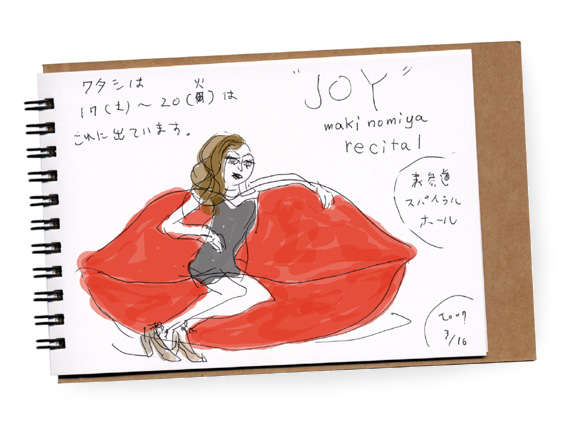 ワタシは
17(土)〜20(火)は
これに出ています。
"JOY"
maki nomiya
recital
表参道
スパイラル
ホール
2009
1/16